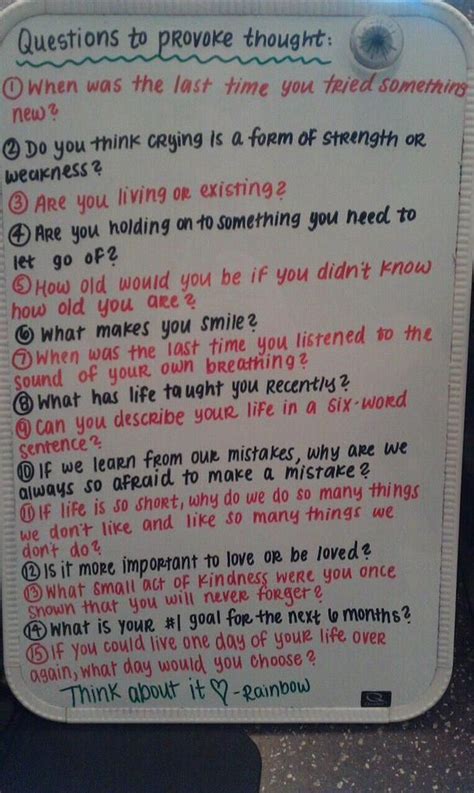 Questions to provoke thought:
① When was the last time you tried something
new?
② Do you think crying is a form of strength or
weakness?
③ Are you living or existing?
④ Are you holding on to something you need to
let go of?
⑤ How old would you be if you didn't know
how old you are?
⑥ What makes you smile?
⑦ When was the last time you listened to the
sound of your own breathing?
⑧ What has life taught you recently?
⑨ Can you describe your life in a six-word
sentence?
⑩ If we learn from our mistakes, why are we
always so afraid to make a mistake?
⑪ If life is so short, why do we do so many things
we don't like and like so many things we
don't do?
⑫ Is it more important to love or be loved?
⑬ What small act of kindness were you once
shown that you will never forget?
⑭ What is your #1 goal for the next 6 months?
⑮ If you could live one day of your life over
again, what day would you choose?
Think about it ♡ -Rainbow